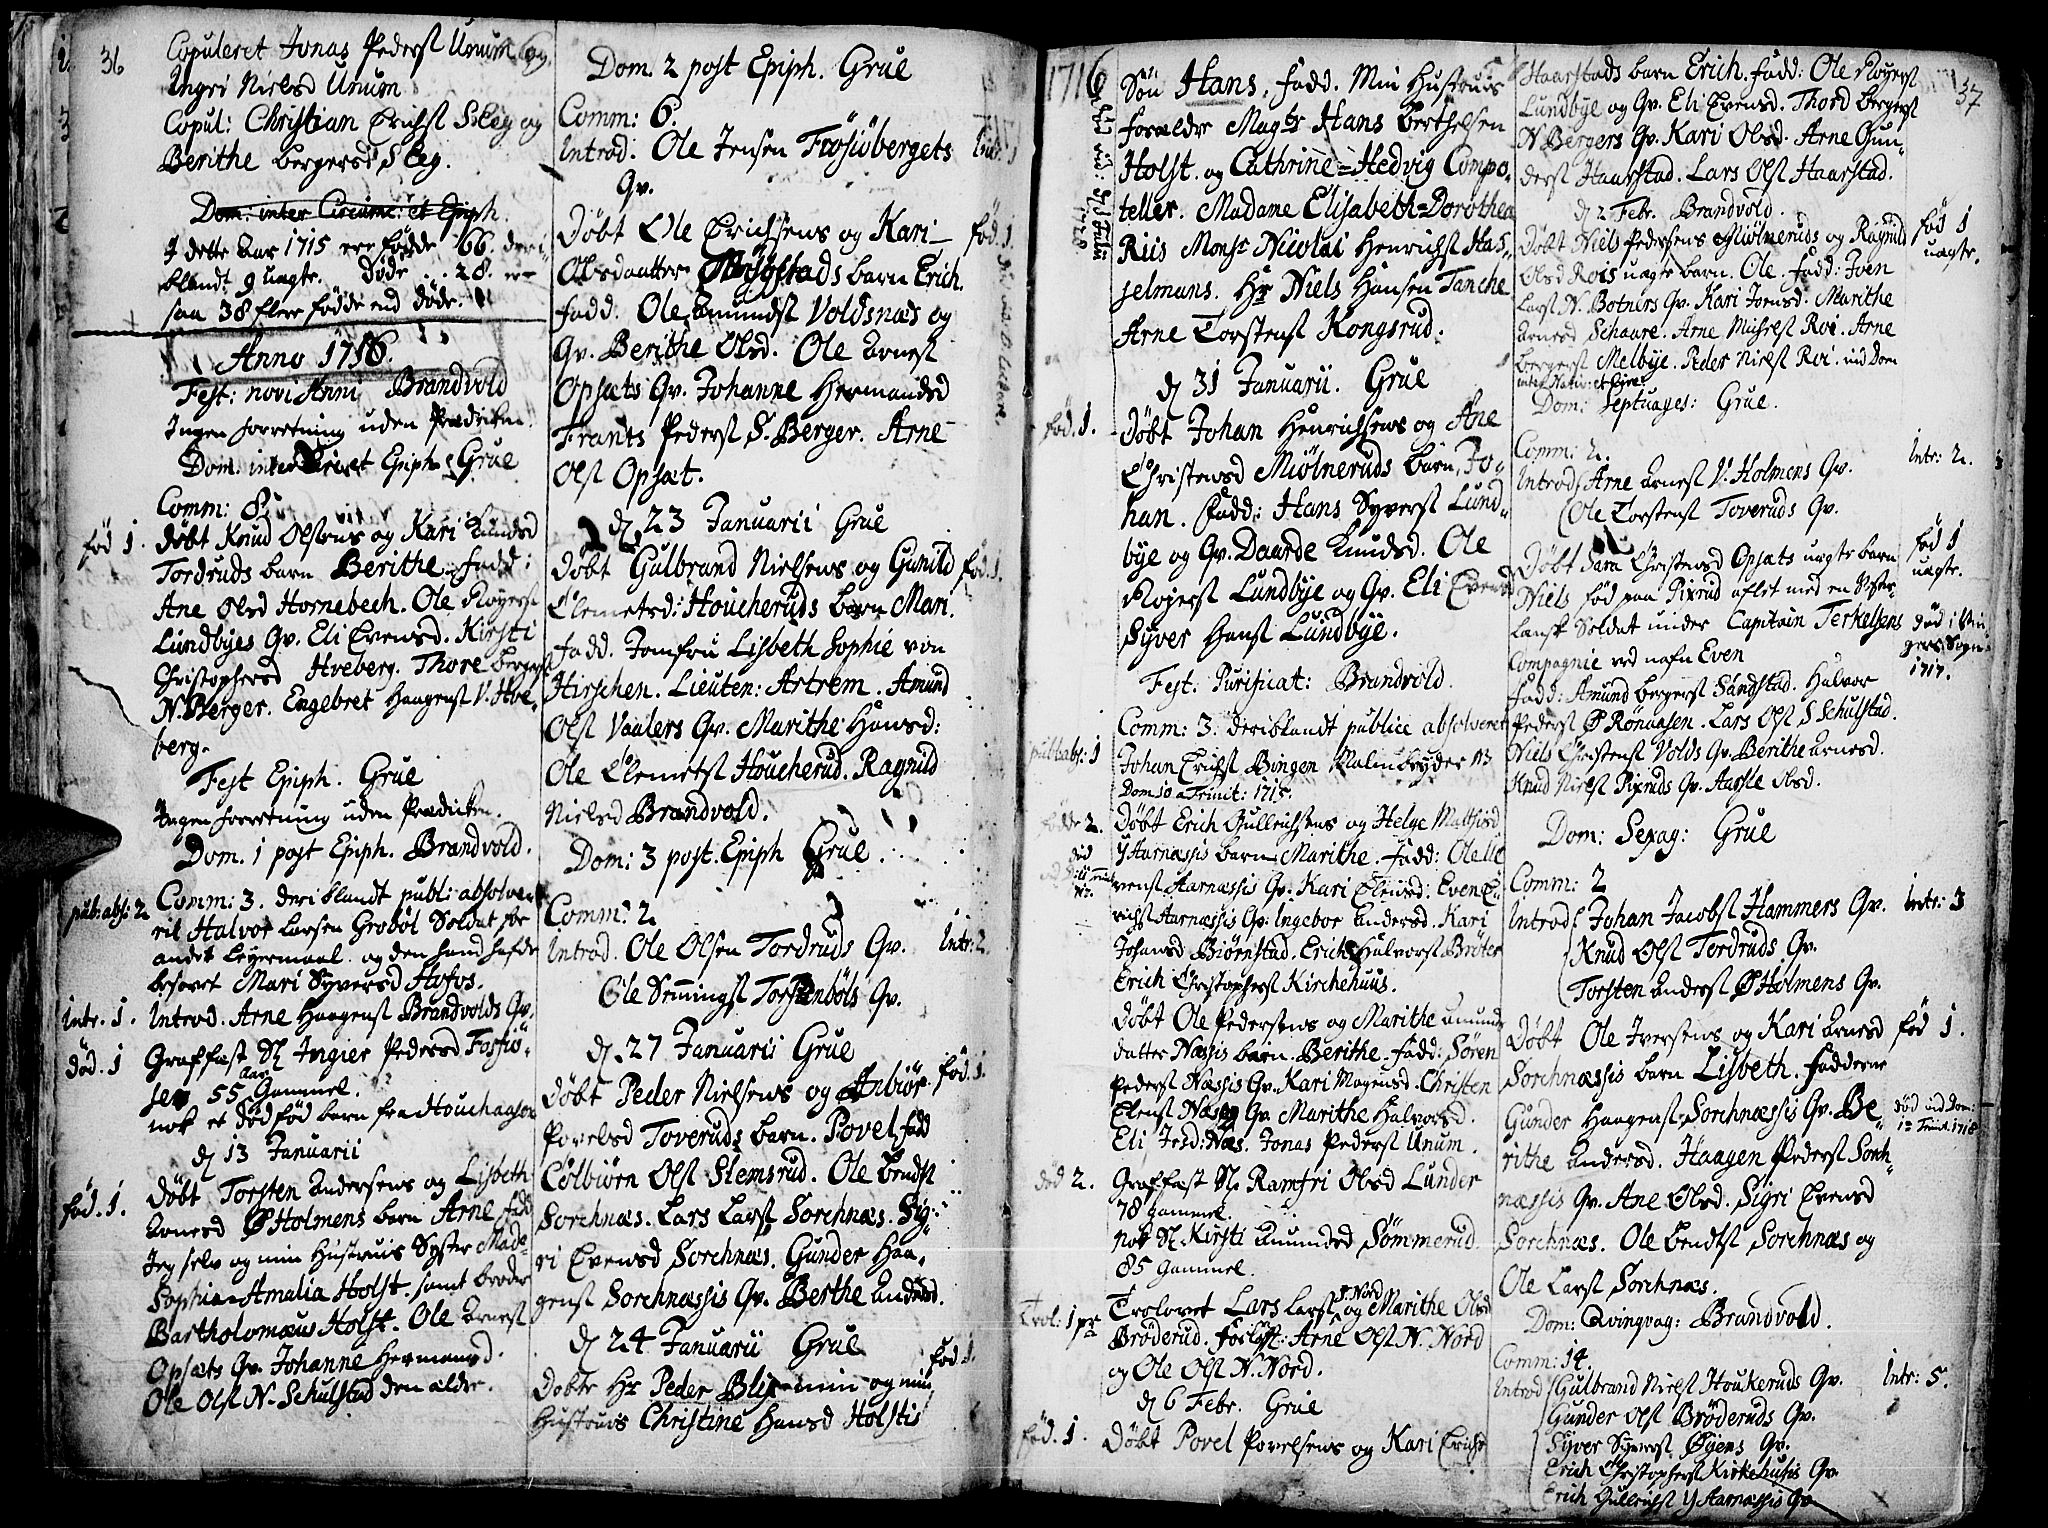 36
Copuleret Jonas Pederst Unum og
Ingri Nielsd Unum
Copul: Christian Erichst Sleg og
Berithe bergersd Sleg.
Dom: inter Circumc: et Epiph.
I dette Aar 1715 ere fødde 66. deri
blandt 9 uagte. døde .. 28. ere
saa 38 flere fødde end døde.
Anno 1716.
Fest: novi Anni Brandvold
Ingen forretning uden Prædiken
Dom. inter et Epiph. Grue
Comm: 8.
fød 1. døbt Knud Olsens og Kari
Tordruds barn Berithe. fadd:
Ane Olsd Hornebech. Ole Røyerst
Lundbyes Qv. Eli Evensd. Kirsti
Christophersd Hveberg. Thore bergerst
N. Berger. Engebret Haagenst V. Hve-
berg.
Fest Epiph. Grue
Ingen forretning uden Prædiken.
Dom. 1 post Epiph. Brandvold.
pub: abs: 2 Comm: 3. deriblandt publ: absolve-
ril Halvor Larsen Grobøl Soldat for
andet Leyermaal. og den hand hafde
besovet Mari Syversd Hofos.
intr. 1. Introd. Arne Haagenst Brandvolds Qv.
død. 1 Graffæst Sl Ingier Pedersd Fosiø-
sen 55 Aar Gammel.
nok et dødfød barn fra Houchaasen
d 13 Januarii
fød. 1. døbt Torsten Andersens og Lisbeth
Arnesd Ø Holmens barn Arne fadd
Jeg selv og min Hustrues Syster Made-
Sophia Amalia Holst. samt broder
Bartholomæus Holst. Ole Arnest
Opsæts Qv. Johanne Hermansd.
Ole Olst N. Schulstad den eldre.
Dom. 2 post Epiph. Grue
Comm: 6.
Introd. Ole Jensen Frosiøbergets intr. 1
Qv.
Døbt Ole Erichsens og Kari fød. 1.
Olsdaatter barn Erich.
fadd. Ole Amundst Voldsnæs og
Qv. Berithe Olsd. Ole Arnest
Opsæts Qv. Johanne Hermansd
Frants Pederst S. Berger. Arne
Olst Opsæt.
d 23 Januarii Grue
Døbt Gulbrand Nielsens og Gunild fød. 1.
Clemetsd: Houcheruds barn Mari.
fadd. Jomfru Lisbeth Sophie von
Hirschen. Lieuten: Artrem. Amund
Olst Vaalers Qv. Marithe Hansd:
Ole Clemetst Houcherud. Ragnild
Nielsd Brandvold.
Dom: 3 post. Epiph Grue.
Comm: 2
Introd. Ole Olsen Tordruds Qv. Intr: 2.
Ole Semingst Torstenbøls Qv.
d. 27 Januarii Grue
Døbt Peder Nielsens og Anbiør fød. 1.
Povelsd Toveruds barn. Povel. fadd
Colbiørn Olst Slemsrud. Ole bendst
Sorchnæs. Lars Larst Sorchnæs. Sig-
ri Evensd Sorchnæs. Gunder Haa-
genst Sorchnæssis Qv. Berthe Andersd.
d 24 Januarii Grue
fød. 1.
Døbte Hr Peder Blix min og min
Hustrues Christine Hansd Holstis
1716
Søn Hans. fadd. Min Hustrues
forældre Magtr Hans Berthelsen
Holst. og Cathrine=Hedvig Compo-
teller. Madame Elisabeth=Dorothea
Riis Monsr Nicolai Henrichst Has-
selmans. Hr Niels Hansen Tanche
Arne Torstenst Kongsrud.
d 31 Januarii. Grue
fød. 1. Døbt Johan Henrichsens og Ane
Christensd Miølneruds barn, Jo-
han. Fadd: Hans Syverst Lund-
bye og Qv. Daarde Knudsd. Ole
Røjerst Lundbye og Qv. Eli Evensd
Syver Hanst Lundbye.
Fest. Purificat: Brandvold.
Comm: 3. deriblandt publice absolveret
pub: abs: 1 Johan Erichst Bingen Malmbryder
Dom 10 a Trinit: 1715.
fødde 2. Døbt Erich Gullichsens og Helge Mathisd
Y Aarnæssis barn Marithe. fadd: Ole
venst Aarnæssis Qv. Kari Elensd: Even E-
richst Aarnæssis Qv. Ingebor Andersd. Kari
Johansd Biørnstad. Erich Halvorst Brøten
Erich Christopherst Kirchehuus.
Døbt Ole Pedersens og Marithe Amunds
datter Næssis barn. Berithe. fadd: Søren
Pederst Næssis Qv. Kari Mogensd. Christen
Elenst Næs Qv Marithe Halvorsd.
Eli Jesd: Næs. Jonas Pederst Unum.
død 2. Graffæst Sl Ramfri Olsd Lunder
78 gammel.
Nok Sl Kirsti Amundsd Sømmerud.
85 Gammel.
Trol: 1 pr Trolovet Lars Larst S. Nord og Marithe Olsd
Brøderud. forløft: Arne Olst N. Nord
og Ole Olst N. Nord.
d 6 Febr. Grue
fød. 1. Døbt Povel Povelsens og Kari Erichsd
37
Haarstads barn Erich. fadd: Ole Røyerst
Lundbye og Qv. Eli Evensd. Thord Bergerst
N Bergers Qv. Kari Olsd. Arne Gun-
derst Haarstad. Lars Olst Haarstad.
d 2 Febr. Brandvold.
Døbt Niels Pedersens Miølneruds og Ragnild fød 1
Olsd Rois uagte barn. Ole. fadd: Joen uagte.
Larst N. Botners Qv. Kari Joensd. Marithe
Arnesd Schaare. Arne Roi. Arne
bergerst Melbye. Peder Nielst Roi. ind Dom
inter Nativ: et
Dom: Septuages: Grue.
Comm: 2.
Introd Arne Arnest V. Holmens Qv. Intr: 2.
Ole Torstenst Toveruds Qv.
Døbt Sara Christensd Opsæts uagte barn fød 1
Niels fød paa Pixrud aflet med en Vester- uagte.
lansk Soldat under Capitain Terkelsens død i Vin-
Compagnie ved nafn Even gers Sogn
1717.
fadd: Amund bergerst Sandstad. Halvor
Pederst Ø Rønaasen. Lars Olst S Schulstad.
Niels Christenst Volds Qv. Berithe Arnesd.
Knud Nielst Pixruds Qv. Aasle Olsd.
Dom: Sexag: Grue
Comm: 2
Introd Johan Jacobst Hammers Qv. Intr: 3
Knud Olst Tordruds Qv.
Torsten Anderst Ø Holmens Qv.
Døbt Ole Iversens og Kari Arnesd fød 1.
Sorchnæssis barn Lisbeth. faddere
Gunder Haagenst Sorchnæssis Qv. Be- død ind Dom:
rithe Andersd. Haagen Pederst Sorch-
næssis Qv. Ane Olsd. Sigri Evensd
Sorchnæs. Ole Bendtst Sorchnæs og
Ole Larst Sorchnæs.
Dom: Qvingvag: Brandvold.
Comm: 14.
Introd Gulbrand Nielst Houkeruds Qv. Intr: 5.
Gunder Olst Brøderuds Qv.
Syver Syverst Øyens Qv.
Erich Christopherst Kirkehuusis Qv.
Erich Gullichst Y Aarnæssis Qv